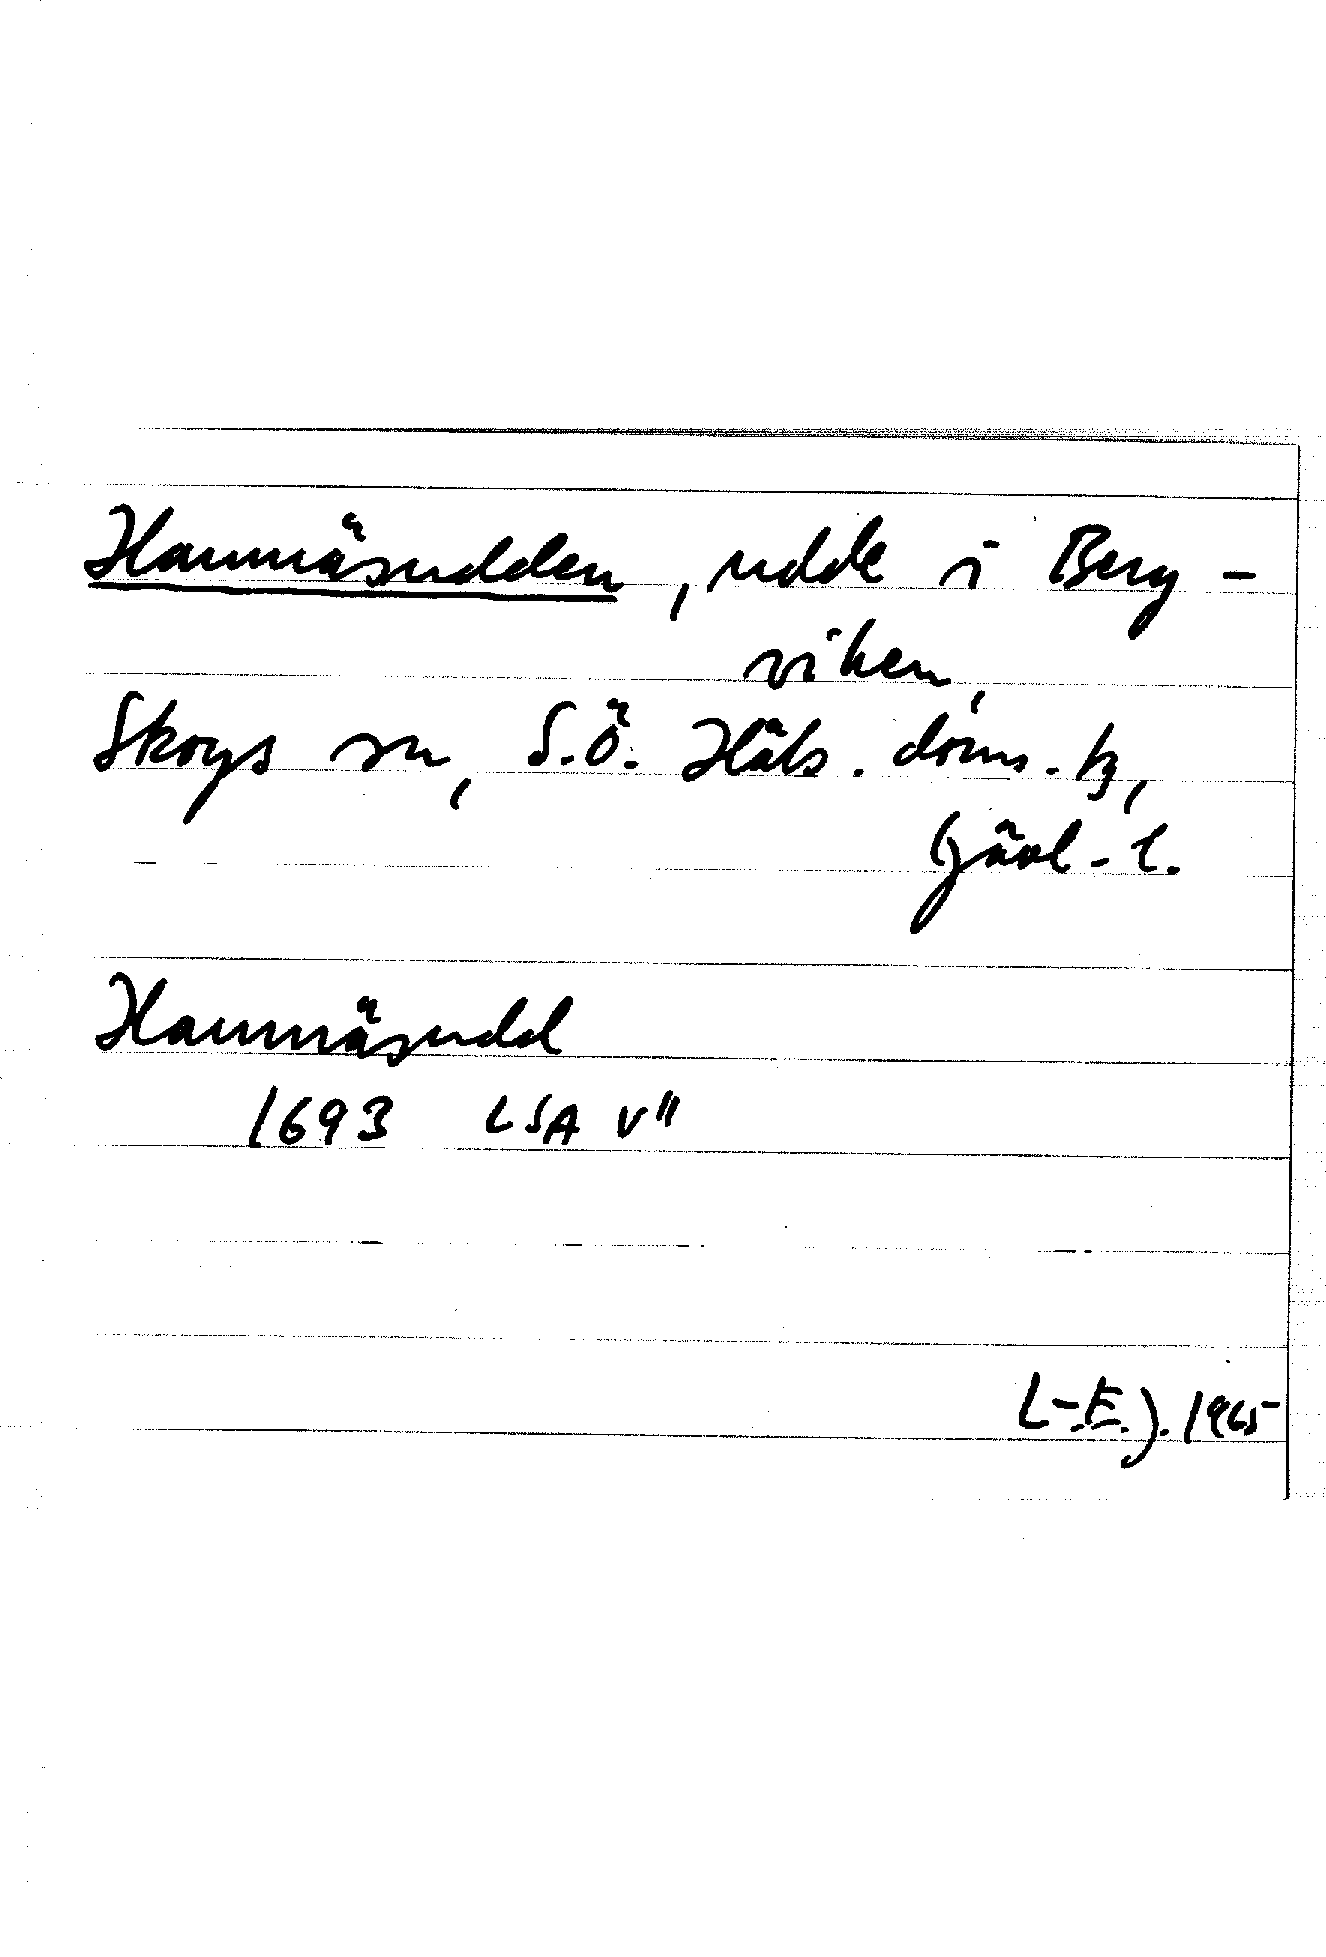 Hamnäsudden, udde i Berg-
viken,
Skogs sn, S.Ö. Häls. doms.
Gävl-l.
Hamnäsudd
1693 LSA V"
L-E.J. 1965